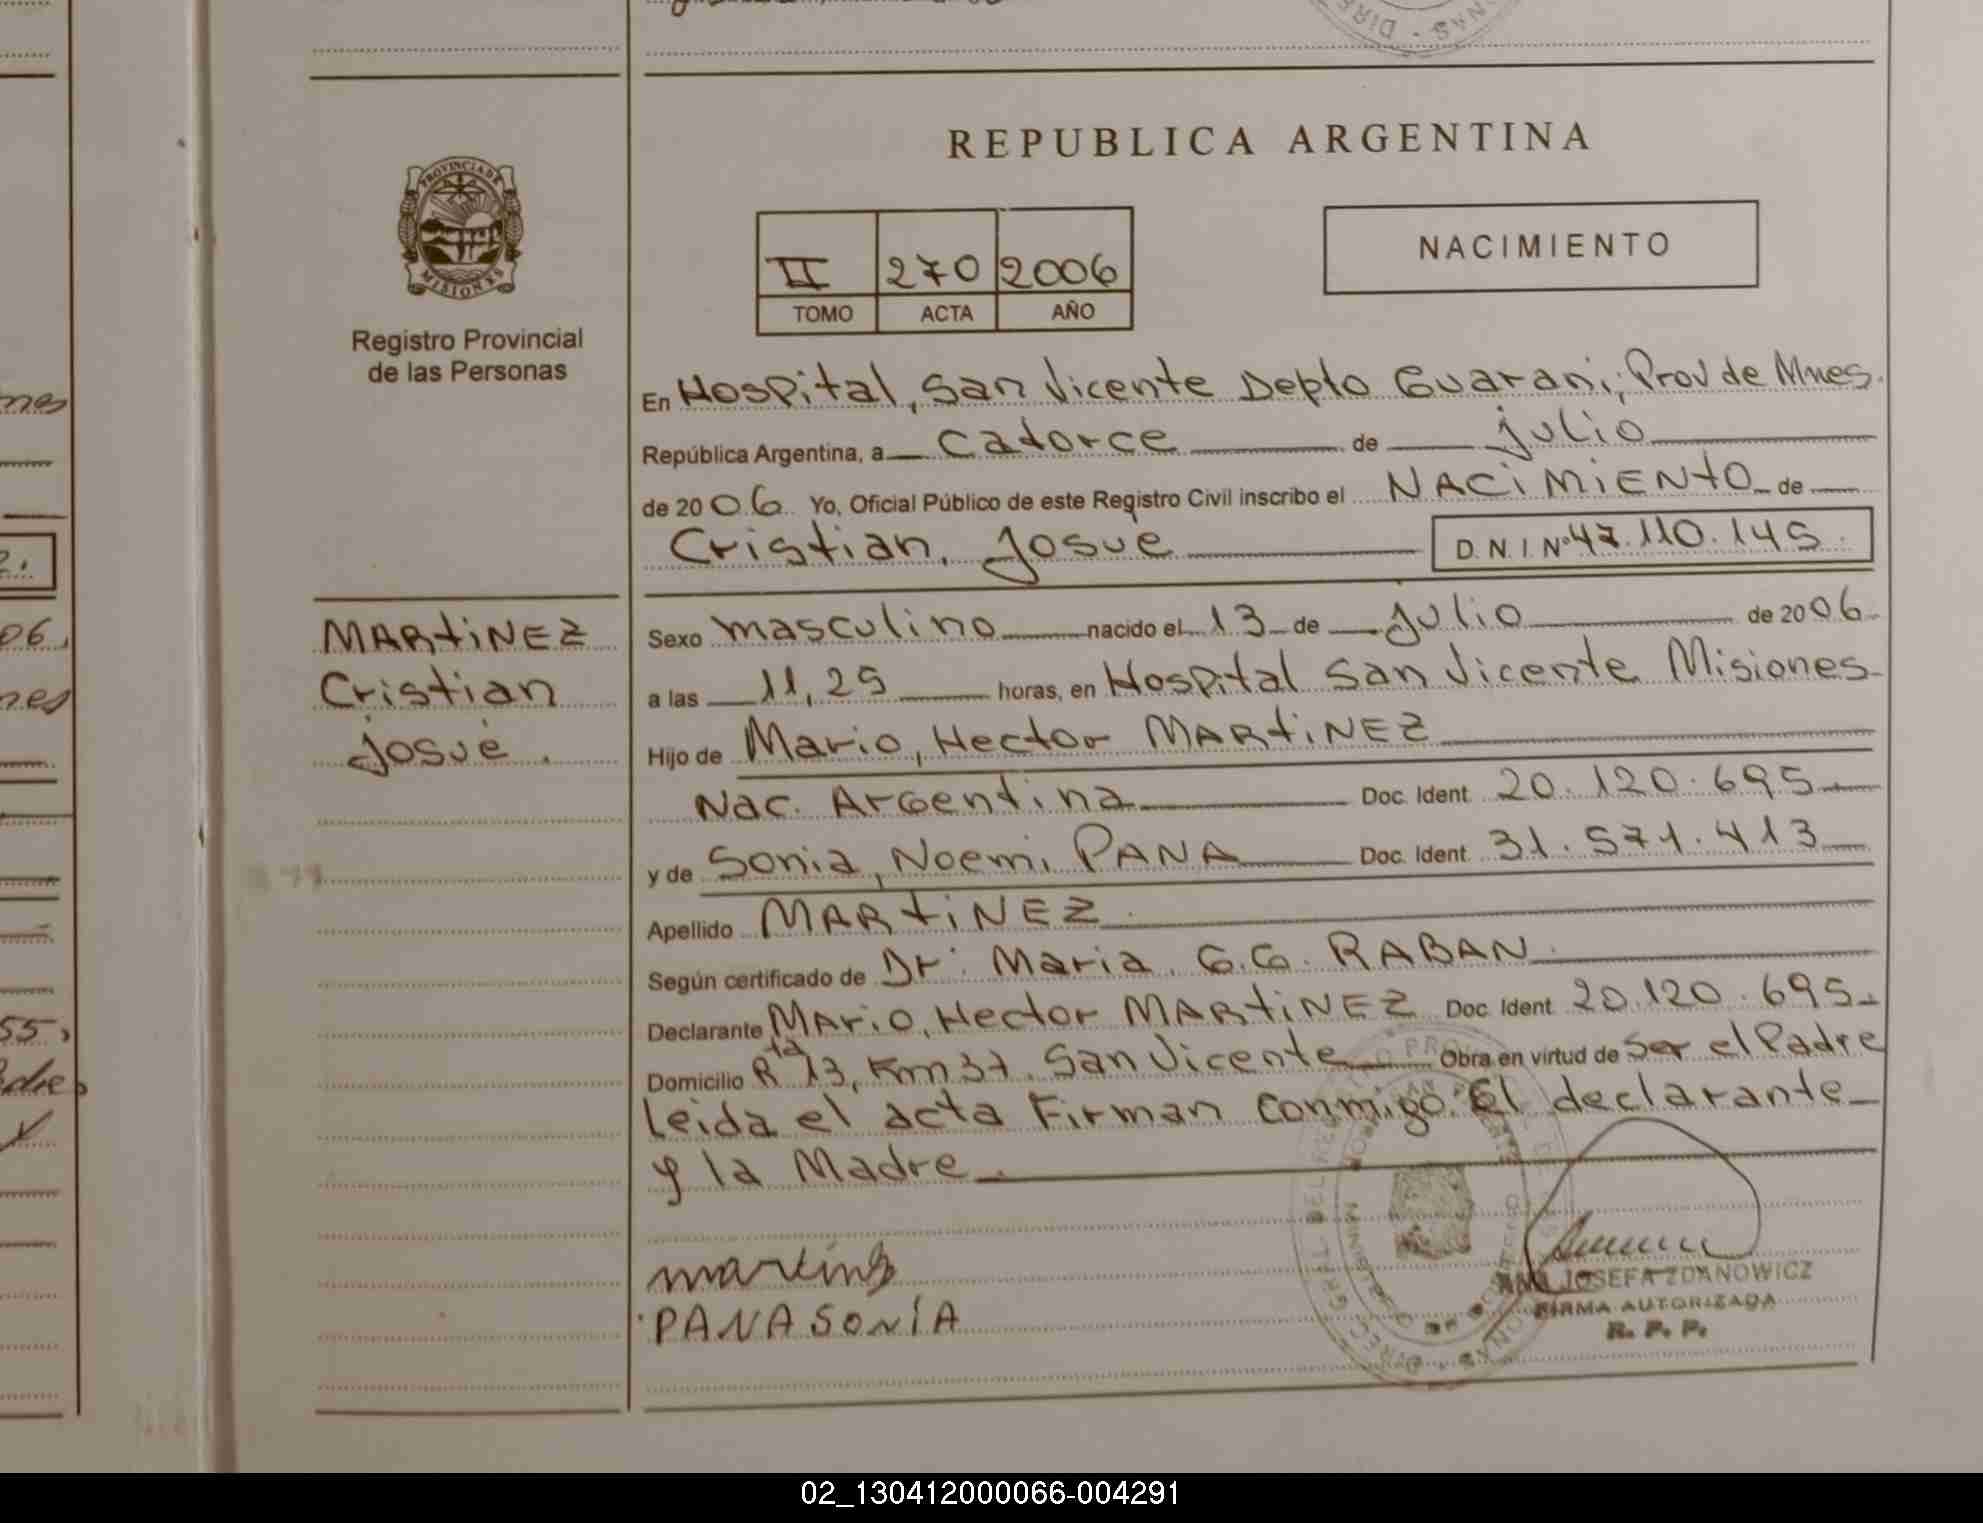 REPUBLICA ARGENTINA
PROVINCIA DE
MISIONES
Registro Provincial
de las Personas
II 270 2006
TOMO ACTA AÑO
NACIMIENTO
En Hospital, San Vicente Depto Guarani, Prov de Mnes.
República Argentina, a catorce de julio
de 2006 Yo, Oficial Público de este Registro Civil inscribo el NACiMiENtO de
Cristian, Josue D.N.I. Nº 47.110.145.
MARtiNEZ
Cristian
Josué.
Sexo masculino nacido el 13 de julio de 2006
a las 11,25 horas, en Hospital San Vicente Misiones
Hijo de Mario, Hector MARtiNEZ
Nac. Argentina Doc. Ident. 20.120.695
y de Sonia, Noemi PANA Doc. Ident. 31.571.413
Apellido MARtiNEZ.
Según certificado de Dr: Maria. G.G. RABAN.
Declarante Mario, Hector MARtiNEZ Doc. Ident. 20.120.695
Domicilio Rta 13, Km 37. San Vicente Obra en virtud de ser el Padre
Leida el acta Firman conmigo: El declarante
y la Madre.
PANA SONIA
ANA JOSEFA ZDANOWICZ
FIRMA AUTORIZADA
R. P. P.
02_130412000066-004291